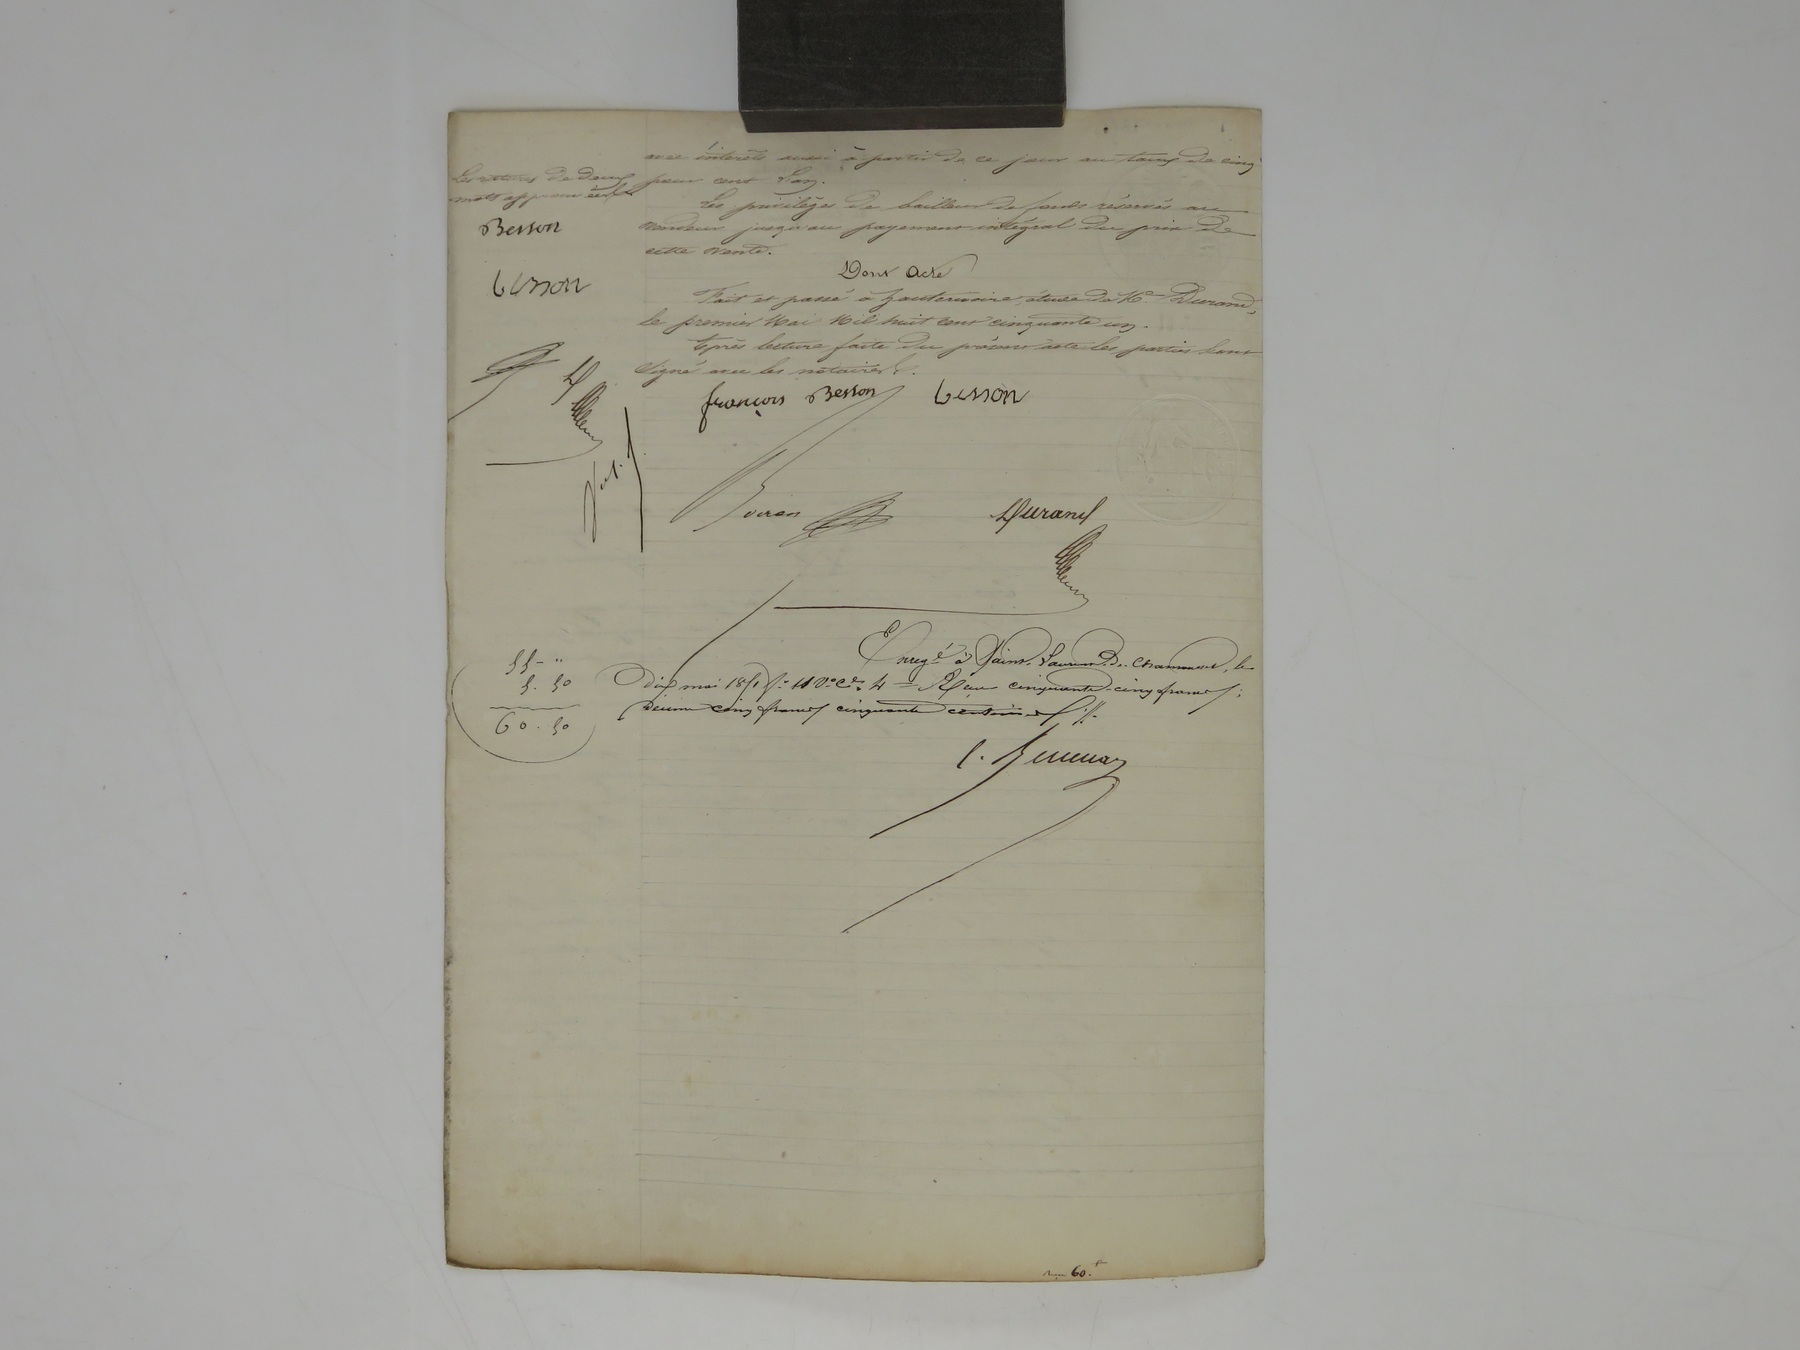 avec intérêts aussi à partir de ce jour au taux de cinq
pour cent l'an.
Les privilèges de bailleur de fonds réservés au
vendeur jusqu'au payement intégral du prix de
cette vente.
Dont Acte
Fait et passé à hauterivoire, étude de Me Durand,
le premier Mai Mil huit cent cinquante un.
Après lecture faite du présent acte les parties sont
signé avec les notaires.
françois Besson Besson
Durand
Les ratures de deux
mots approuvées
Besson
Besson
55 - "
5. 50
60 . 50
Enregé à Saint Laurent de Chamousset, le
dix mai 1851 fo 11 Vo Ce 4 Reçu cinquante-cinq francs;
décime cinq francs cinquante centimes
60.f